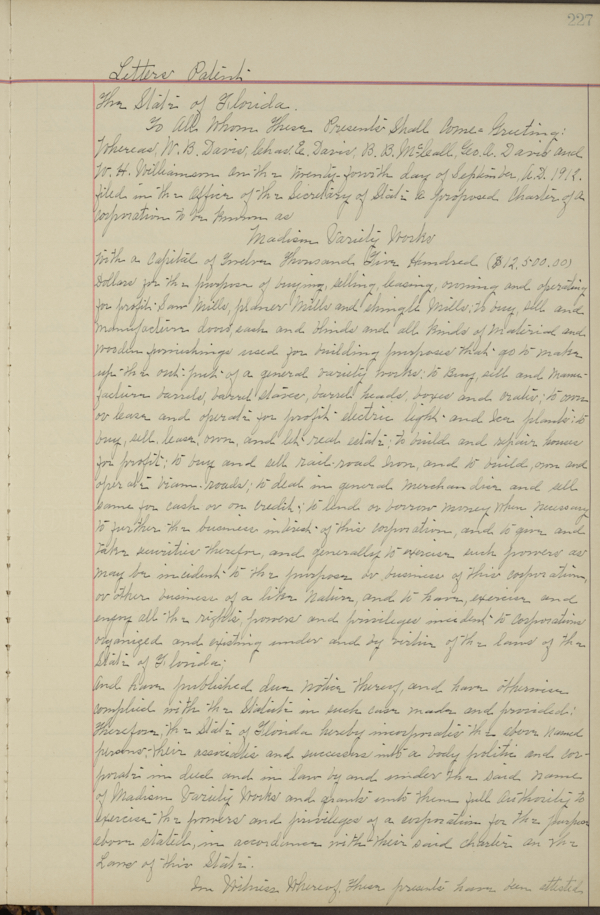 227
Letters Patent
The State of Florida.
To All Whom These Presents Shall Come Greeting:
Whereas, W. B. Davis, Chas. E. Davis, B. B. McCall, Geo. C. Davis and
W. H. Williamson on the twenty-fourth day of September, A.D. 191
filed in the Office of the Secretary of State a proposed Charter of a
Corporation to be known as
Madison Variety Works
With a Capital of Twelve Thousand Five Hundred ($12,500.00)
Dollars for the purpose of buying, selling, leasing, owning and operating
for profit Saw Mills, planer Mills and shingle Mills; to buy, sell and
manufacture doors, sash and blinds and all kinds of material and
wooden furnishings used for building purposes that go to make
up the out-put of a general variety works; to Buy, sell and Manu-
facture barrels, barrel staves, barrel heads, boxes and crates; to own
or lease and operate for profit electric light and Ice plants; to
buy, sell, lease, own, and let real estate; to build and repair houses
for profit; to buy and sell rail-road Iron, and to build, own and
operate tram-roads; to deal in general merchandise and sell
same for cash or on credit; to lend or borrow money when necessary
to further the business interest of this corporation, and to give and
take securities therefor, and generally to exercise such powers as
may be incident to the purpose or business of this corporation,
or other business of a like nature, and to have, exercise and
enjoy all the rights, powers and privileges incident to corporations
organized and existing under and by virtue of the laws of the
State of Florida:
And have published due notice thereof, and have otherwise
complied with the Statute in such case made and provided:
Therefore, the State of Florida hereby incorporates the above named
persons, their associates and successors into a body politic and cor-
porate in deed and in law by and under the said name
of Madison Variety Works and grants unto them full authority to
exercise the powers and privileges of a corporation for the purpose
above stated, in accordance with their said charter an the
Laws of this State.
In Witness Whereof, These presents have been attested